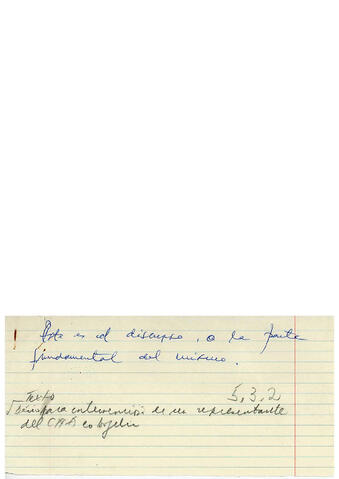 Este es el discurso, o la parte
fundamental del mismo.
5.3.2
Texto
para intervención de un representante
del